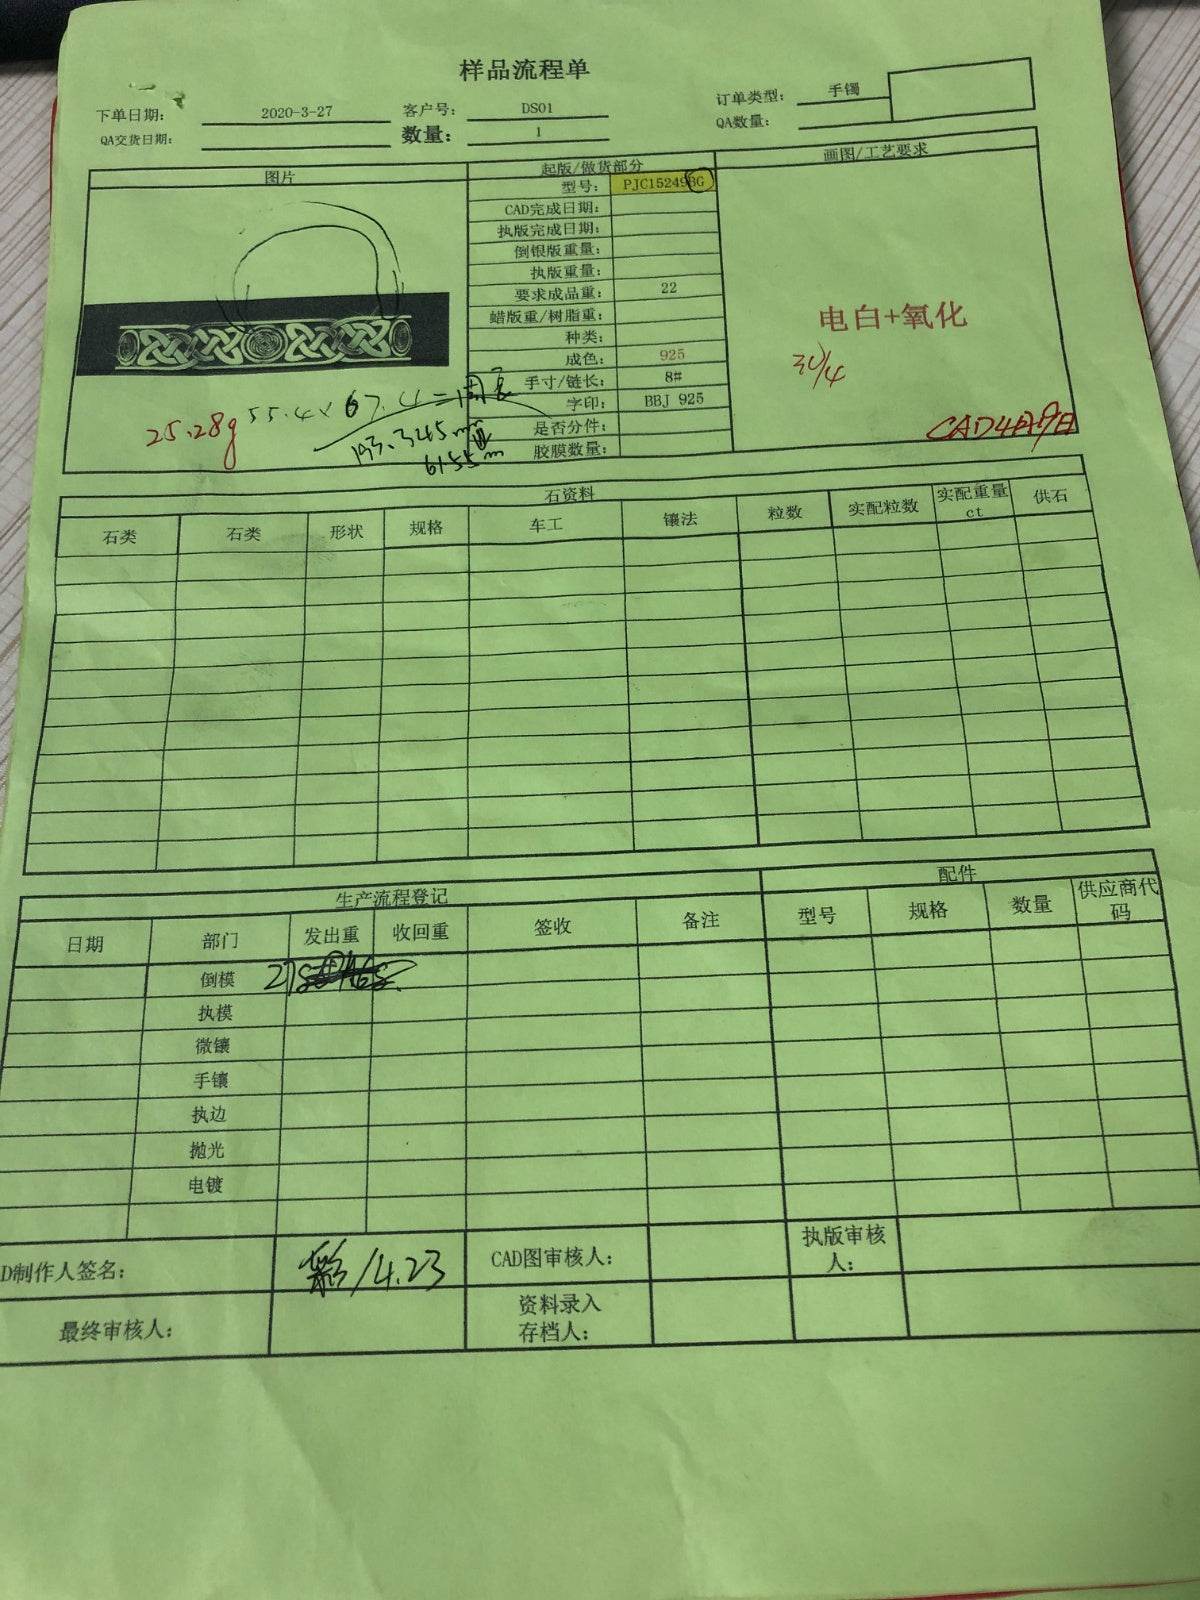 样品流程单
下单日期： 2020-3-27 客户号： DS01 订单类型： 手镯
QA交货日期： 数量： 1 QA数量：
图片 起版/做货部分 画图/工艺要求
型号： PJC15249BG
CAD完成日期：
执版完成日期：
倒银版重量：
执版重量：
要求成品重： 22
蜡版重/树脂重：
电白+氧化
种类：
成色： 925
30/4
手寸/链长： 8#
字印： BBJ 925
是否分件：
胶膜数量：
25.28g 55.4×67.4=周长
193.345mm
61.55m
CAD4月9日
石资料
石类 石类 形状 规格 车工 镶法 粒数 实配粒数 实配重量ct 供石
生产流程登记 配件
日期 部门 发出重 收回重 签收 备注 型号 规格 数量 供应商代码
倒模
执模
微镶
手镶
执边
抛光
电镀
D制作人签名： /4.23 CAD图审核人： 执版审核人：
最终审核人： 资料录入存档人：